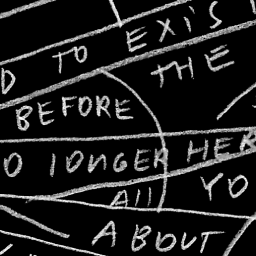 TO EXIS
THE
BEFORE
O LONGER HER
All YO
ABOUT